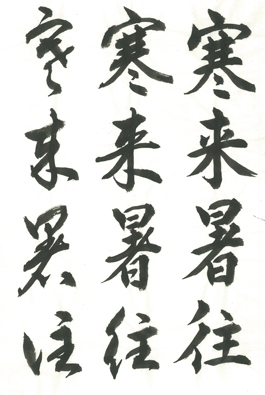 寒来暑往
寒来暑往
寒来暑往